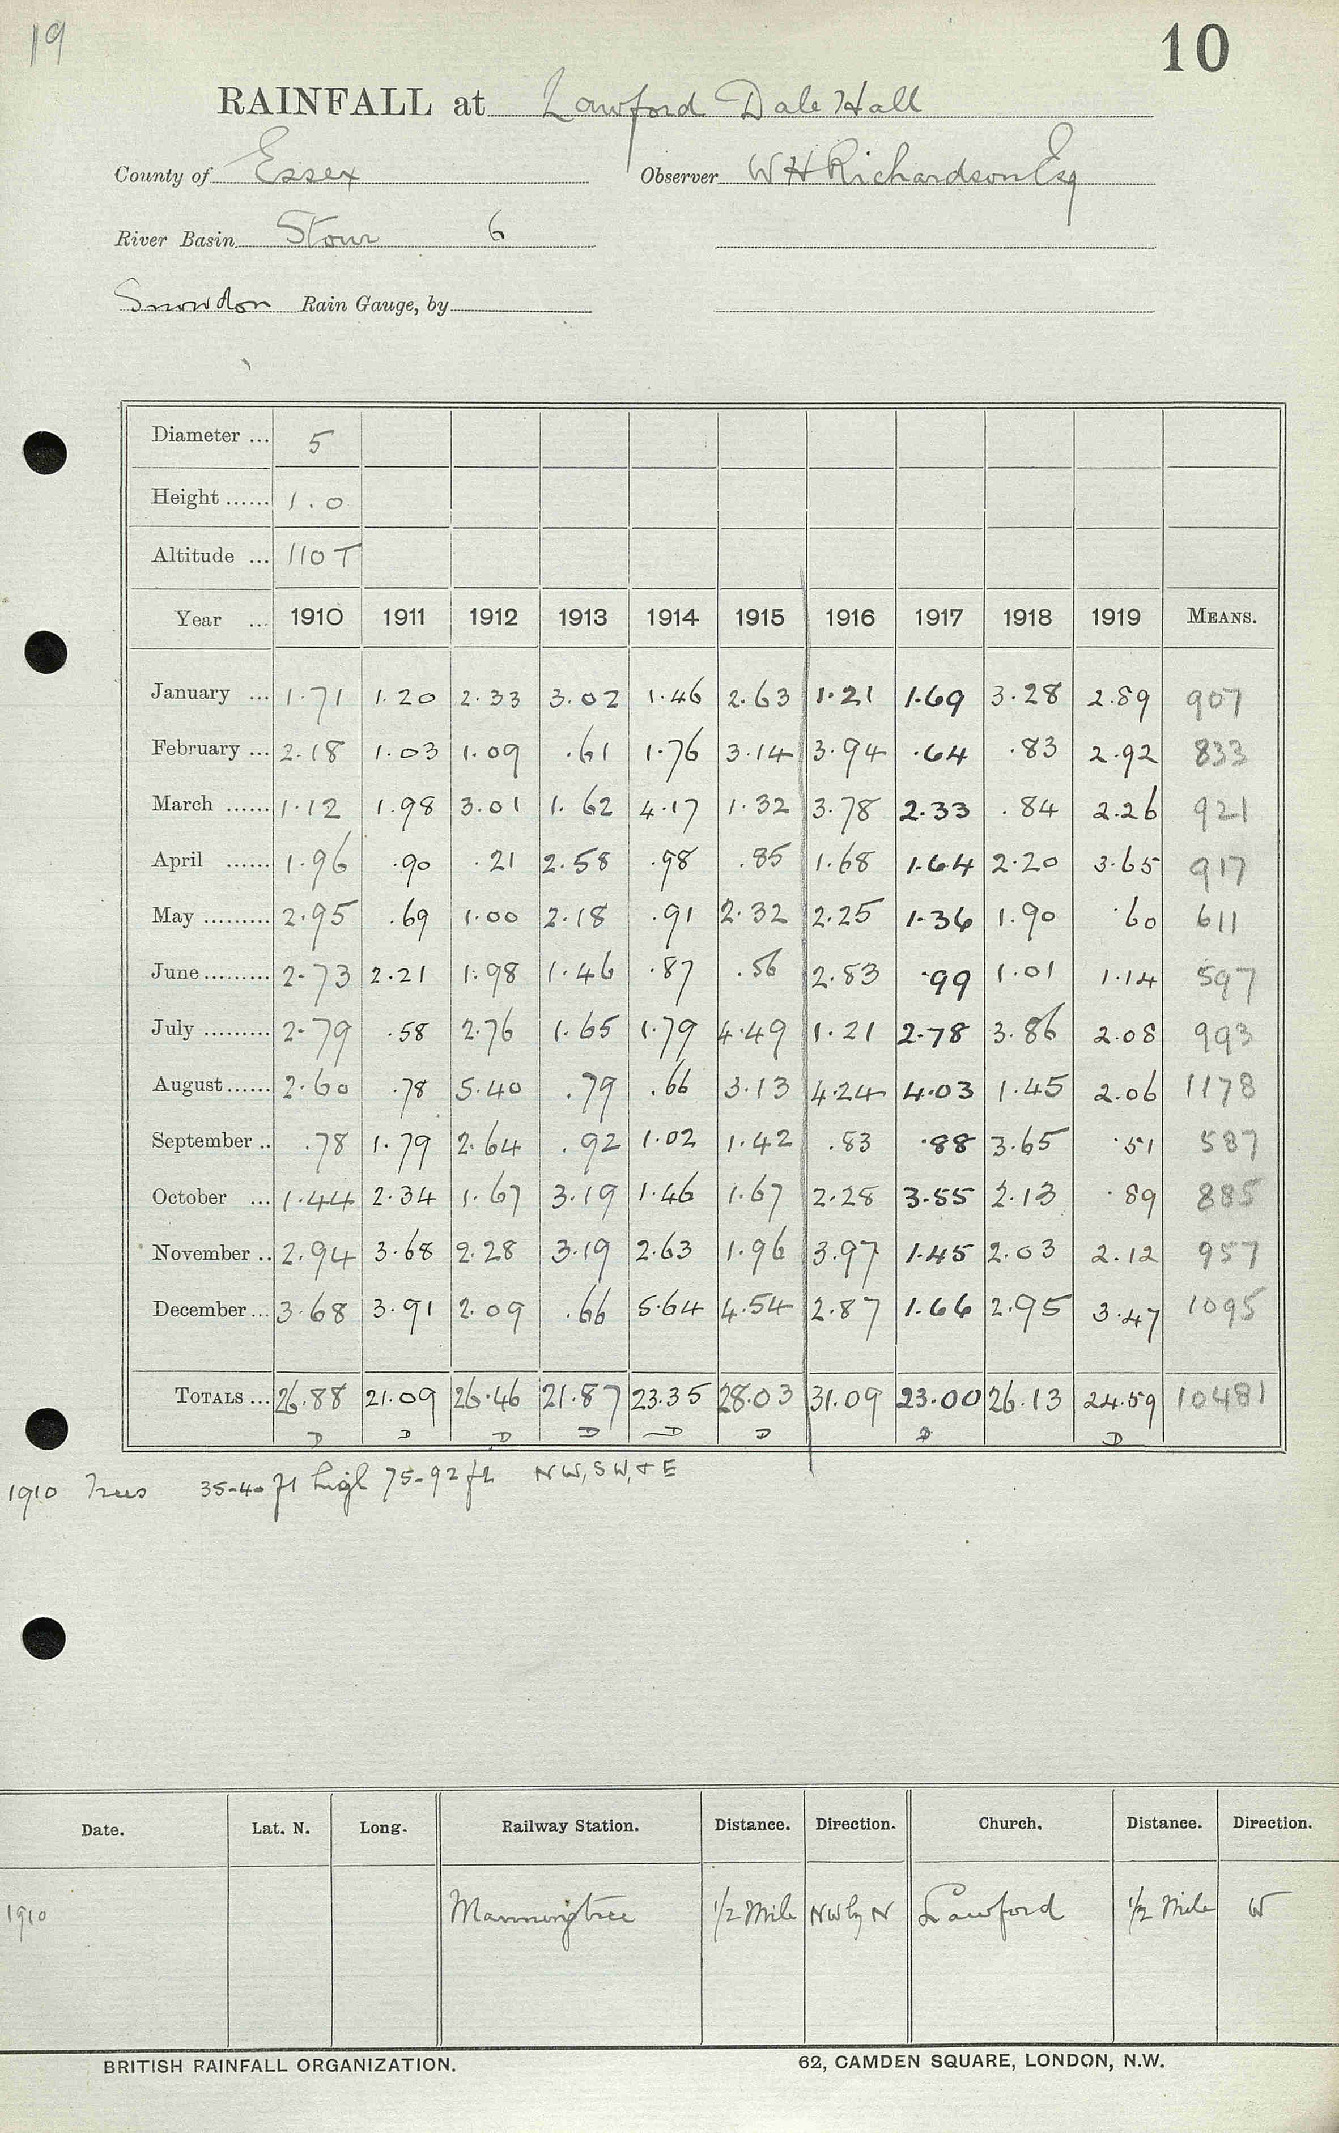 19
10
RAINFALL at Lawford Dale Hall
County of Essex Observer W H Richardson Esq
River Basin Stour 6
Snowdon Rain Gauge, by
Diameter ... 5
Height ...... 1.0
Altitude ... 110 T
Year ... 1910 1911 1912 1913 1914 1915 1916 1917 1918 1919 MEANS.
January ... 1.71 1.20 2.33 3.02 1.46 2.63 1.21 1.69 3.28 2.89 907
February ... 2.18 1.03 1.09 .61 1.76 3.14 3.94 .64 .83 2.92 833
March ...... 1.12 1.98 3.01 1.62 4.17 1.32 3.78 2.33 .84 2.26 921
April ...... 1.96 .90 .21 2.58 .98 .85 1.68 1.64 2.20 3.65 917
May ......... 2.95 .69 1.00 2.18 .91 2.32 2.25 1.36 1.90 .60 611
June ......... 2.73 2.21 1.98 1.46 .87 .56 2.83 .99 1.01 1.14 597
July ......... 2.79 .58 2.76 1.65 1.79 4.49 1.21 2.78 3.86 2.08 993
August ...... 2.60 .78 5.40 .79 .66 3.13 4.24 4.03 1.45 2.06 1178
September .. .78 1.79 2.64 .92 1.02 1.42 .83 .88 3.65 .51 587
October ... 1.44 2.34 1.67 3.19 1.46 1.67 2.28 3.55 2.13 .89 885
November .. 2.94 3.68 2.28 3.19 2.63 1.96 3.97 1.45 2.03 2.12 957
December ... 3.68 3.91 2.09 .66 5.64 4.54 2.87 1.66 2.95 3.47 1095
TOTALS ... 26.88 21.09 26.46 21.87 23.35 28.03 31.09 23.00 26.13 24.59 10481
D D D D D D D D
1910 Trees 35-40 ft high 75-92 ft NW, SW, & E
Date. Lat. N. Long. Railway Station. Distance. Direction. Church. Distance. Direction.
1910 Manningtree 1/2 Mile NW by N Lawford 1/2 Mile W
BRITISH RAINFALL ORGANIZATION. 62, CAMDEN SQUARE, LONDON, N.W.